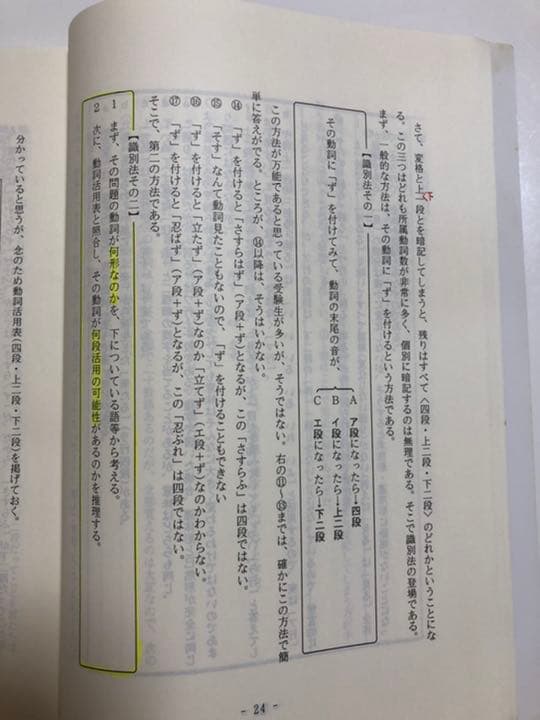 さて、変格と上一段とを暗記してしまうと、残りはすべて〈四段・上二段・下二段〉のどれかということにな
下
る。この三つはどれも所属動詞数が非常に多く、個別に暗記するのは無理である。そこで識別法の登場である。
まず、一般的な方法は、その動詞に「ず」を付けるという方法である。
【識別法その一】
その動詞に「ず」を付けてみて、動詞の末尾の音が、
A ア段になったら→四段
B イ段になったら→上二段
C エ段になったら→下二段
この方法が万能であると思っている受験生が多いが、そうではない。右の⑪〜⑬までは、確かにこの方法で簡
単に答えがでる。ところが、⑭以降は、そうはいかない。
⑭ 「ず」を付けると「さすらはず」(ア段+ず)となるが、この「さすらふ」は四段ではない。
⑮ 「そす」なんて動詞見たこともないので、「ず」を付けることもできない
⑯ 「ず」を付けると「立たず」(ア段+ず)なのか「立てず」(エ段+ず)なのかわからない。
⑰ 「ず」を付けると「忍ばず」(ア段+ず)となるが、この「忍ぶれ」は四段ではない。
そこで、第二の方法である。
【識別法その二】
1 まず、その問題の動詞が何形なのかを、下についている語等から考える。
2 次に、動詞活用表と照合し、その動詞が何段活用の可能性があるのかを推理する。
分かっていると思うが、念のため動詞活用表(四段・上二段・下二段)を掲げておく。
- 24 -